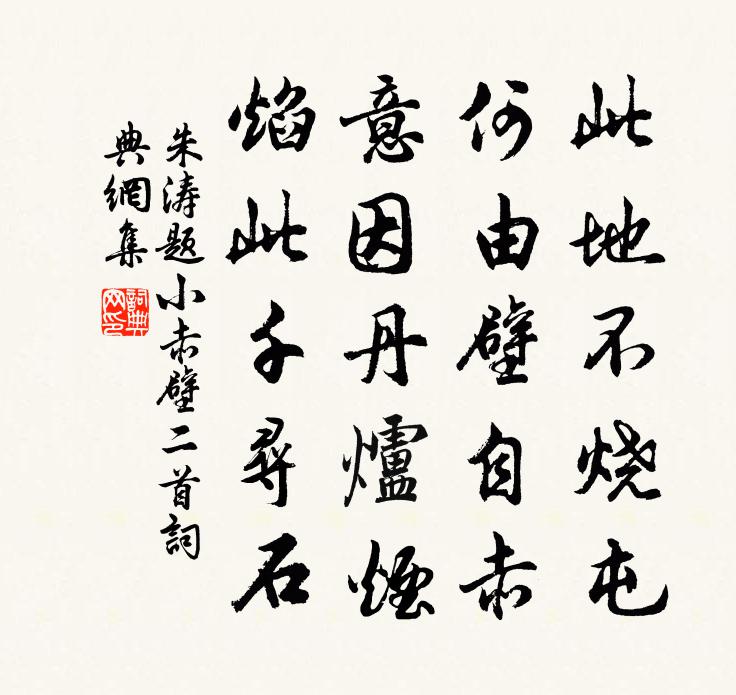 此地不烧屯
何由壁自赤
意因丹爐煙
焰此千尋石
朱涛题小赤壁二首詞
典網集
詞典網印